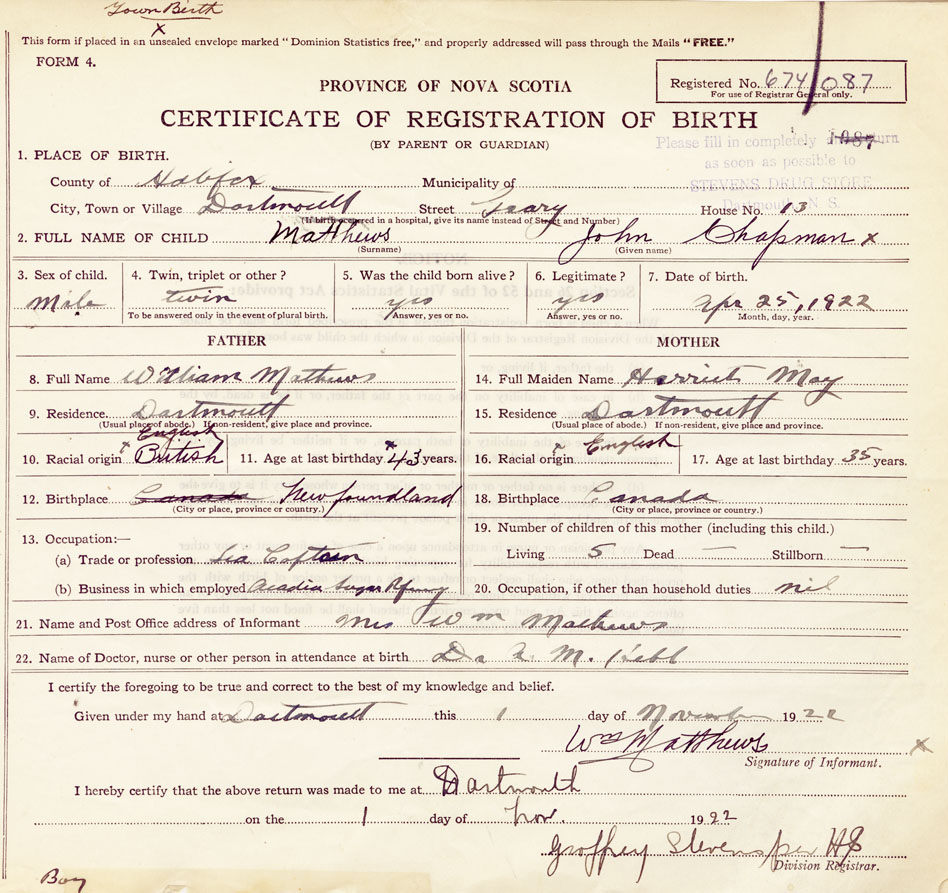 Town Birth
x
This form if placed in an unsealed envelope marked "Dominion Statistics free," and properly addressed will pass through the Mails "FREE."
FORM 4.
Registered No. 674 087
For use of Registrar General only.
PROVINCE OF NOVA SCOTIA
CERTIFICATE OF REGISTRATION OF BIRTH
(BY PARENT OR GUARDIAN)
1087
Please fill in completely and return
as soon as possible to
STEVENS DRUG STORE
Dartmouth, N. S.
1. PLACE OF BIRTH.
County of Halifax Municipality of
City, Town or Village Dartmouth Street Geary House No. 13
(If birth occurred in a hospital, give its name instead of Street and Number)
2. FULL NAME OF CHILD Matthews John Chapman x
(Surname) (Given name)
3. Sex of child. 4. Twin, triplet or other? 5. Was the child born alive? 6. Legitimate? 7. Date of birth.
Male twin yes yes Apr 25, 1922
To be answered only in the event of plural birth. Answer, yes or no. Answer, yes or no. Month, day, year.
FATHER MOTHER
8. Full Name William Mathews 14. Full Maiden Name Harriet May
9. Residence. Dartmouth 15. Residence Dartmouth
(Usual place of abode.) If non-resident, give place and province. (Usual place of abode.) If non-resident, give place and province.
English
10. Racial origin x British 11. Age at last birthday x 43 years. 16. Racial origin x English 17. Age at last birthday 35 years.
12. Birthplace Canada Newfoundland 18. Birthplace Canada
(City or place, province or country.) (City or place, province or country.)
13. Occupation:— 19. Number of children of this mother (including this child.)
(a) Trade or profession Sea Captain Living 5 Dead — Stillborn —
(b) Business in which employed Acadia Sugar Rfinry 20. Occupation, if other than household duties nil
21. Name and Post Office address of Informant Mrs Wm Mathews
22. Name of Doctor, nurse or other person in attendance at birth Dr M.
I certify the foregoing to be true and correct to the best of my knowledge and belief.
Given under my hand at Dartmouth this 1 day of November 1922
Wm Matthews x
Signature of Informant.
I hereby certify that the above return was made to me at Dartmouth
on the 1 day of Nov. 1922
Geoffrey Stevens per HS
Division Registrar.
Boy